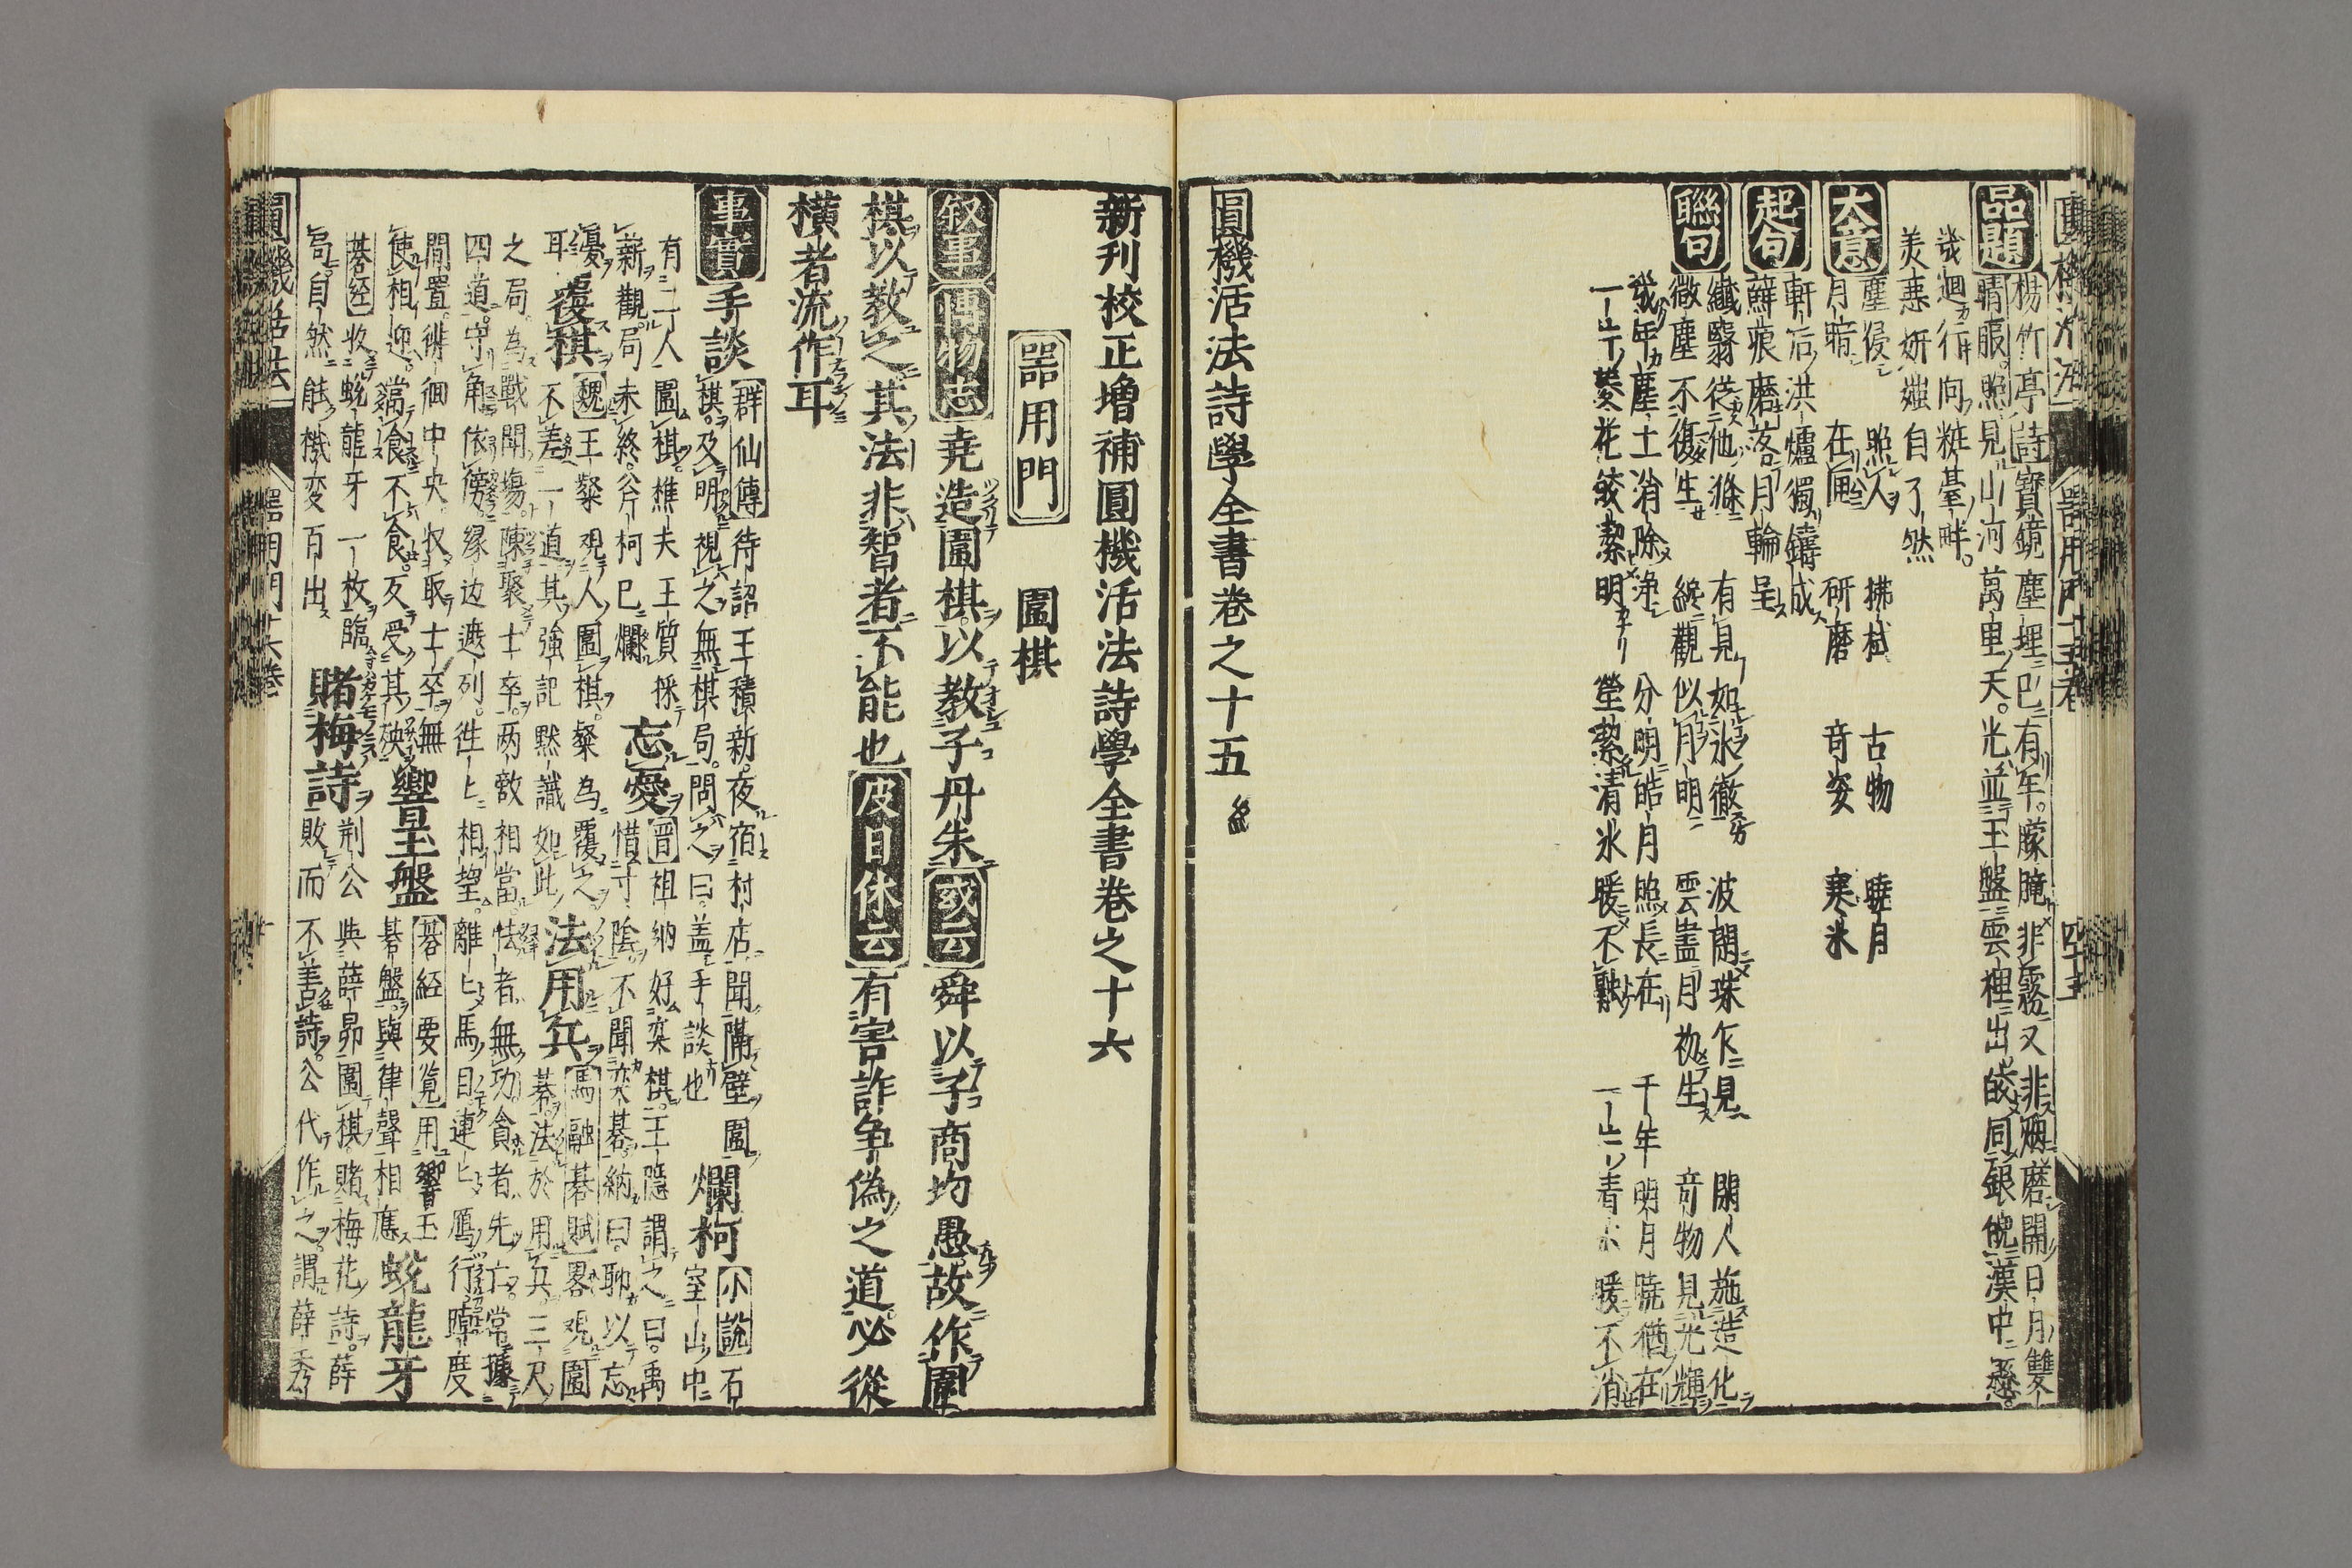 品題
楊竹亭詩寶鏡塵埋已有年。朦朧非霧又非烟磨開日月雙
晴眼。照見山河萬里天。光並玉盤雲裡出皎同銀魄漢中懸。
幾迴行向粧臺畔。
美惡妍媸自了然
大意
塵侵 照人 拂拭 古物 曉月
月暗 在匣 研磨 奇姿 寒氷
起句
軒后洪爐獨鑄成
蘚痕磨落月輪呈
聯句
纎翳從他滌 有見如氷徹 波閒珠乍見 閑人施造化
微塵不復生 終觀似月明 雲盡月初生 奇物見光輝
幾年塵土消除浄 分明皓月照長在 千年明月曉猶在
一片菱花皎潔明 瑩潔清氷暖不融 一片青氷暖不消
圓機活法詩學全書卷之十五 終
新刊校正增補圓機活法詩學全書卷之十六
器用門 圍棋
叙事 博物志 堯造圍棋。以教子丹朱 或云 舜以子商均愚故作圍
棋以教之其法非智者不能也 皮日休云 有害詐争偽之道必從
橫者流作耳
事實 手談 群仙傳 待詔王積新夜宿村店聞隣壁圍
棋。及明視之無棋局。問之曰。盖手談也 爛柯 小說 石室山中
有二人圍棋。樵夫王質採
薪觀局未終。斧柯已爛 忘憂 晋祖納好奕棋。王隱謂之曰。禹
惜寸陰不聞奕碁。納曰。聊以忘
憂耳 覆棋 魏王粲观人圍棋。粲為覆之
不差一道其強記默識如此 法用兵 馬融碁賦 畧观圍
棊法於用兵。三尺
之局為戰鬪場。陳聚士卒。两敵相當。怯者無功貪者先亡常據
四道。守角依傍。緣边遮列。徃ヒ相望。離ヒ馬目連ヒ鴈行踔度
間置。徘徊中央。收取士卒。無
使相迎。當食不食。反受其殃 響玉盤 碁経要览 用響玉
碁盤與律聲相應 蛻龍牙
碁経 收蛻龍牙一枚臨
局。自然觥機変百出 賭梅詩 荆公與薛昴圍棋。賭梅花詩。薛
敗而不善詩。公代作之。謂薛秀
圓機活法
器用門十六卷